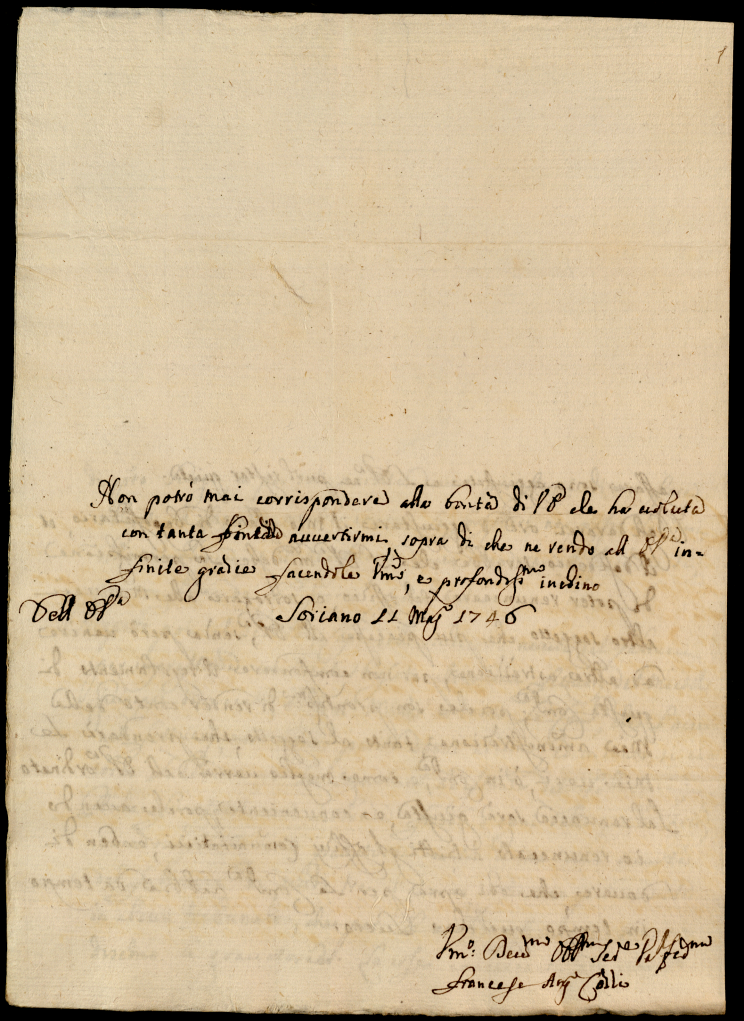 1
Non potrò mai corrispondere alla bontà di che ha voluta
con tanta auvertirmi, sopra di che ne rendo all in=
finite gradie facendole Vmo, e profondissmo inchino
Dell Soriano 11 Mago 1746
Vmo: Devmo Obbmo
Francesco Colli